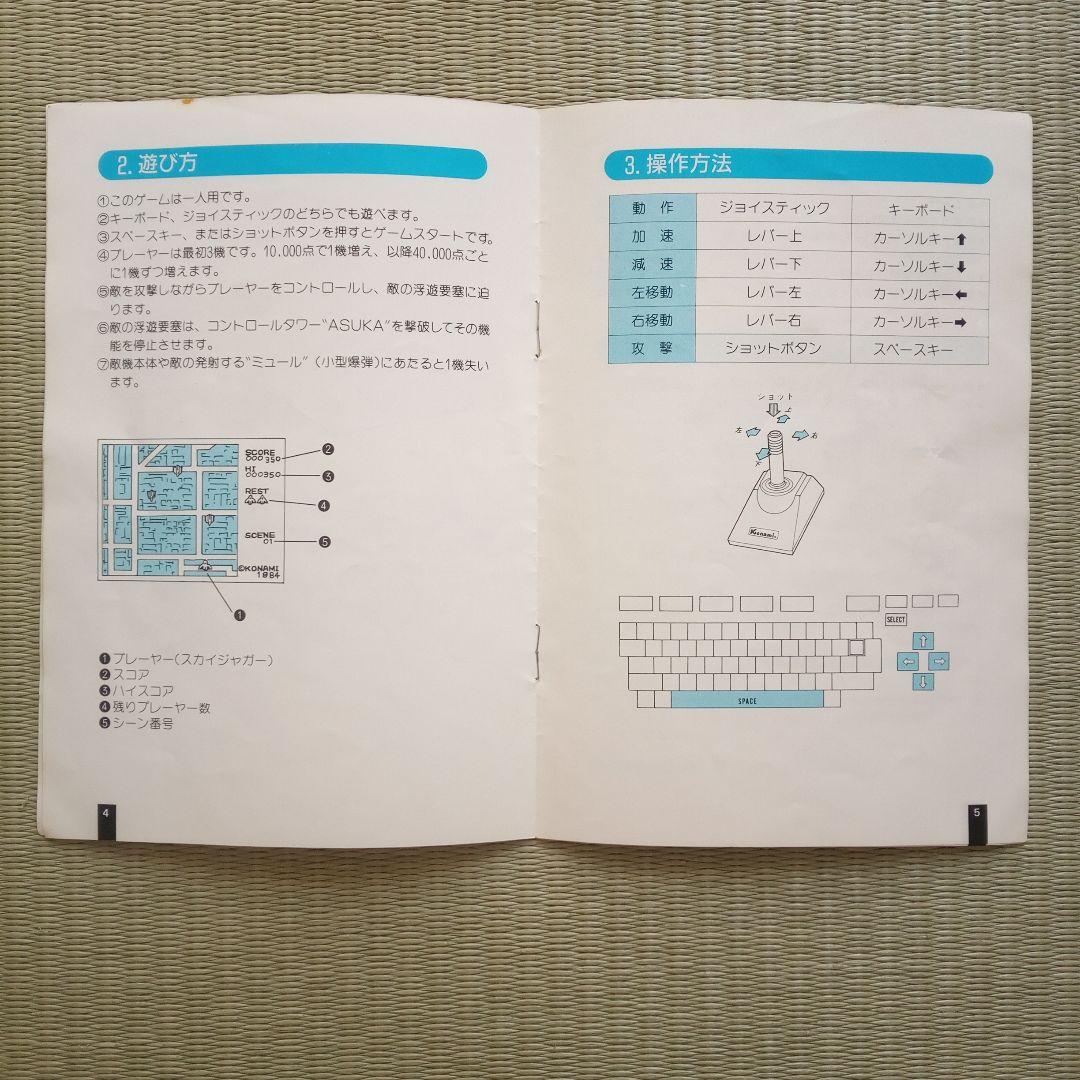 2. 遊び方
①このゲームは一人用です。
②キーボード、ジョイスティックのどちらでも遊べます。
③スペースキー、またはショットボタンを押すとゲームスタートです。
④プレーヤーは最初3機です。10,000点で1機増え、以降40,000点ごと
に1機ずつ増えます。
⑤敵を攻撃しながらプレーヤーをコントロールし、敵の浮遊要塞に迫
ります。
⑥敵の浮遊要塞は、コントロールタワー“ASUKA”を撃破してその機
能を停止させます。
⑦敵機本体や敵の発射する“ミュール”（小型爆弾）にあたると1機失い
ます。
SCORE
000350
HI
000350
REST
SCENE
01
©KONAMI
1984
❷
❸
❹
❺
❶
❶プレーヤー(スカイジャガー)
❷スコア
❸ハイスコア
❹残りプレーヤー数
❺シーン番号
4
3. 操作方法
動作 ジョイスティック キーボード
加速 レバー上 カーソルキー⬆
減速 レバー下 カーソルキー⬇
左移動 レバー左 カーソルキー⬅
右移動 レバー右 カーソルキー➡
攻撃 ショットボタン スペースキー
ショット
上
左
右
下
Konami
SELECT
SPACE
5